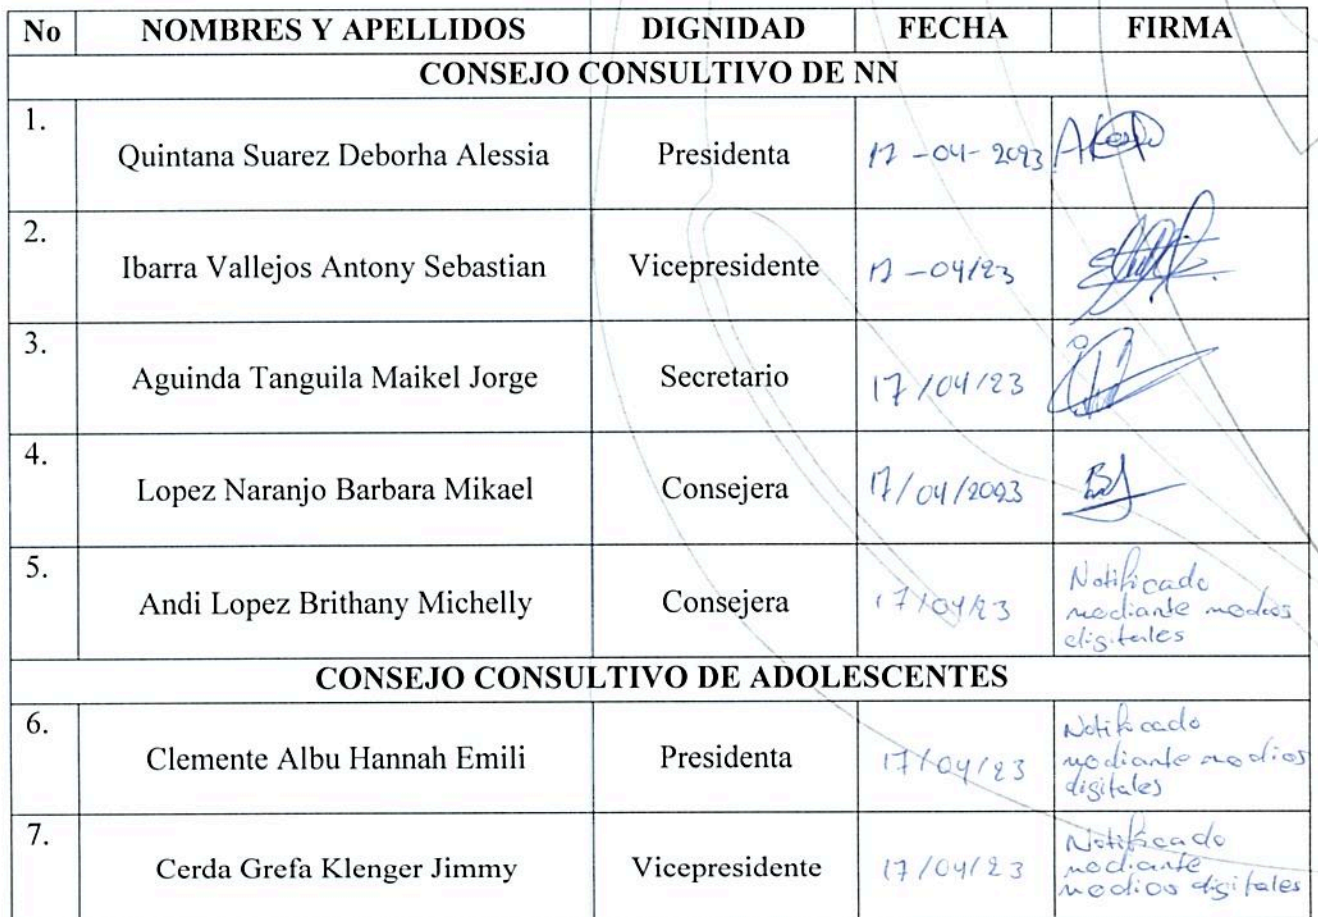 No NOMBRES Y APELLIDOS DIGNIDAD FECHA FIRMA
CONSEJO CONSULTIVO DE NN
1. Quintana Suarez Deborha Alessia Presidenta 17-04-2023
2. Ibarra Vallejos Antony Sebastian Vicepresidente 17-04/23
3. Aguinda Tanguila Maikel Jorge Secretario 17/04/23
4. Lopez Naranjo Barbara Mikael Consejera 17/04/2023
5. Andi Lopez Brithany Michelly Consejera 17/04/23 Notificado
mediante medios
digitales
CONSEJO CONSULTIVO DE ADOLESCENTES
6. Clemente Albu Hannah Emili Presidenta 17/04/23 Notificado
mediante medios
digitales
7. Cerda Grefa Klenger Jimmy Vicepresidente 17/04/23 Notificado
mediante
medios digitales